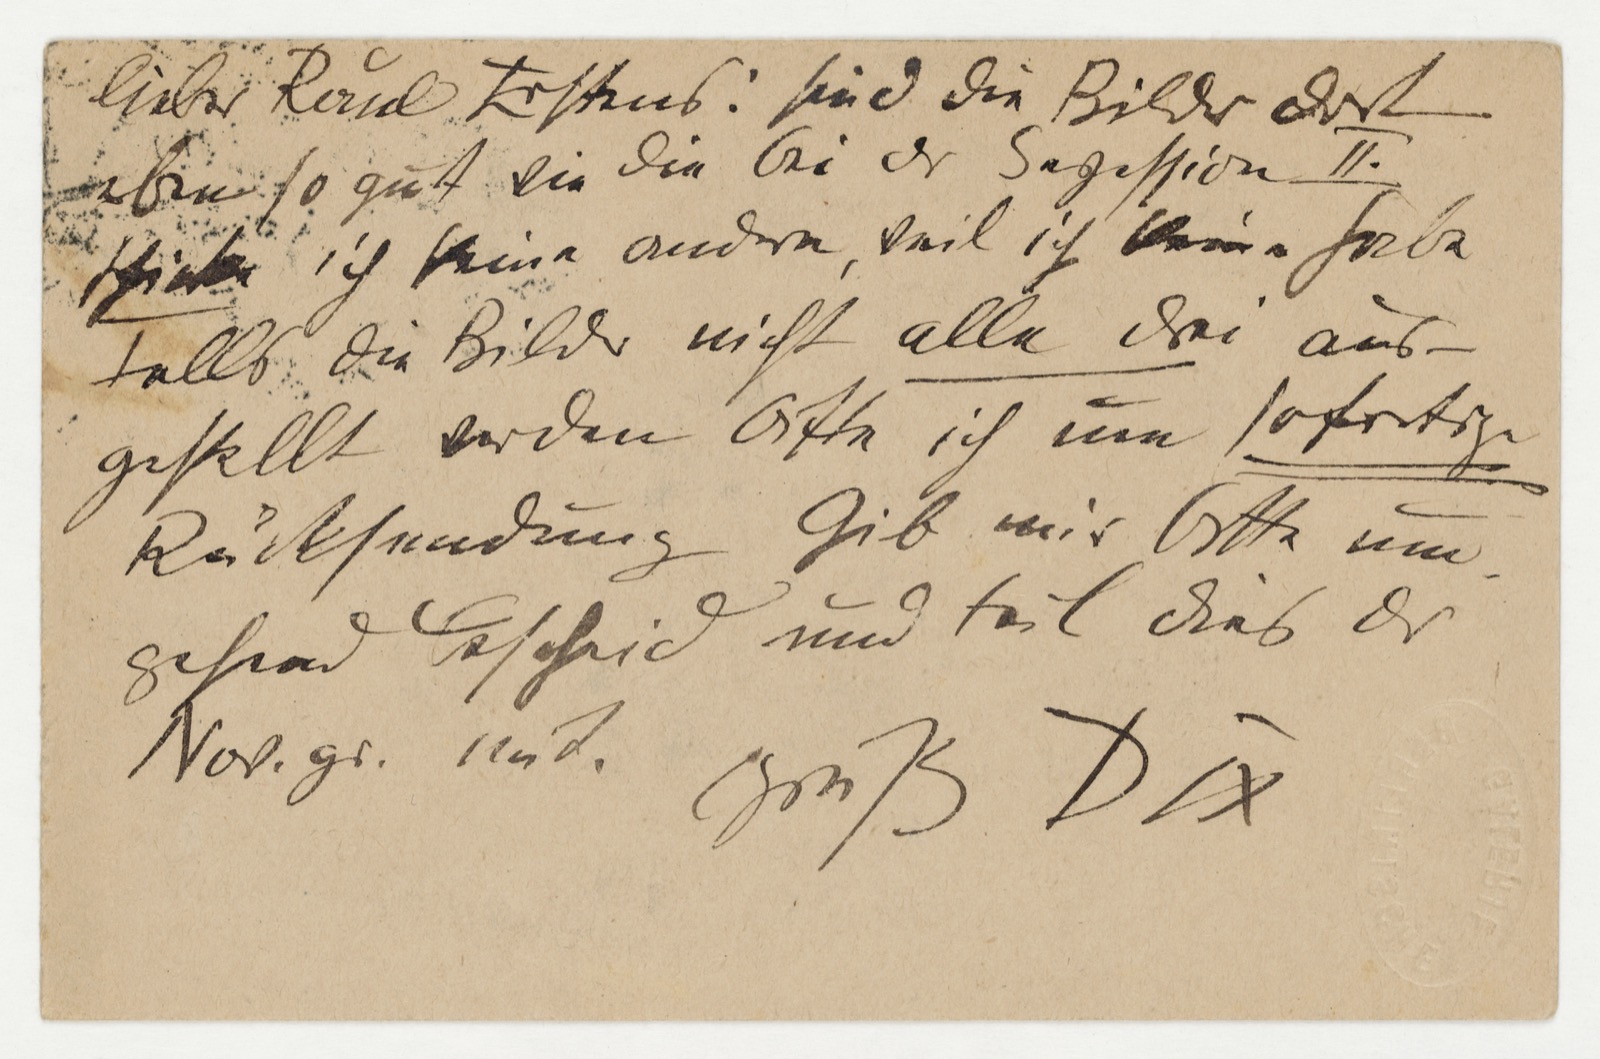 lieber Raoul Erstens: sind die Bilder dort
eben so gut wie die bei der Sezession II.
schicke ich keine andern, weil ich keine habe
falls die Bilder nicht alle drei aus-
gestellt werden bitte ich um sofortige
Rücksendung Gib mir bitte um-
gehend Bescheid und teil dies der
Nov. gr. mit. Gruß DIX